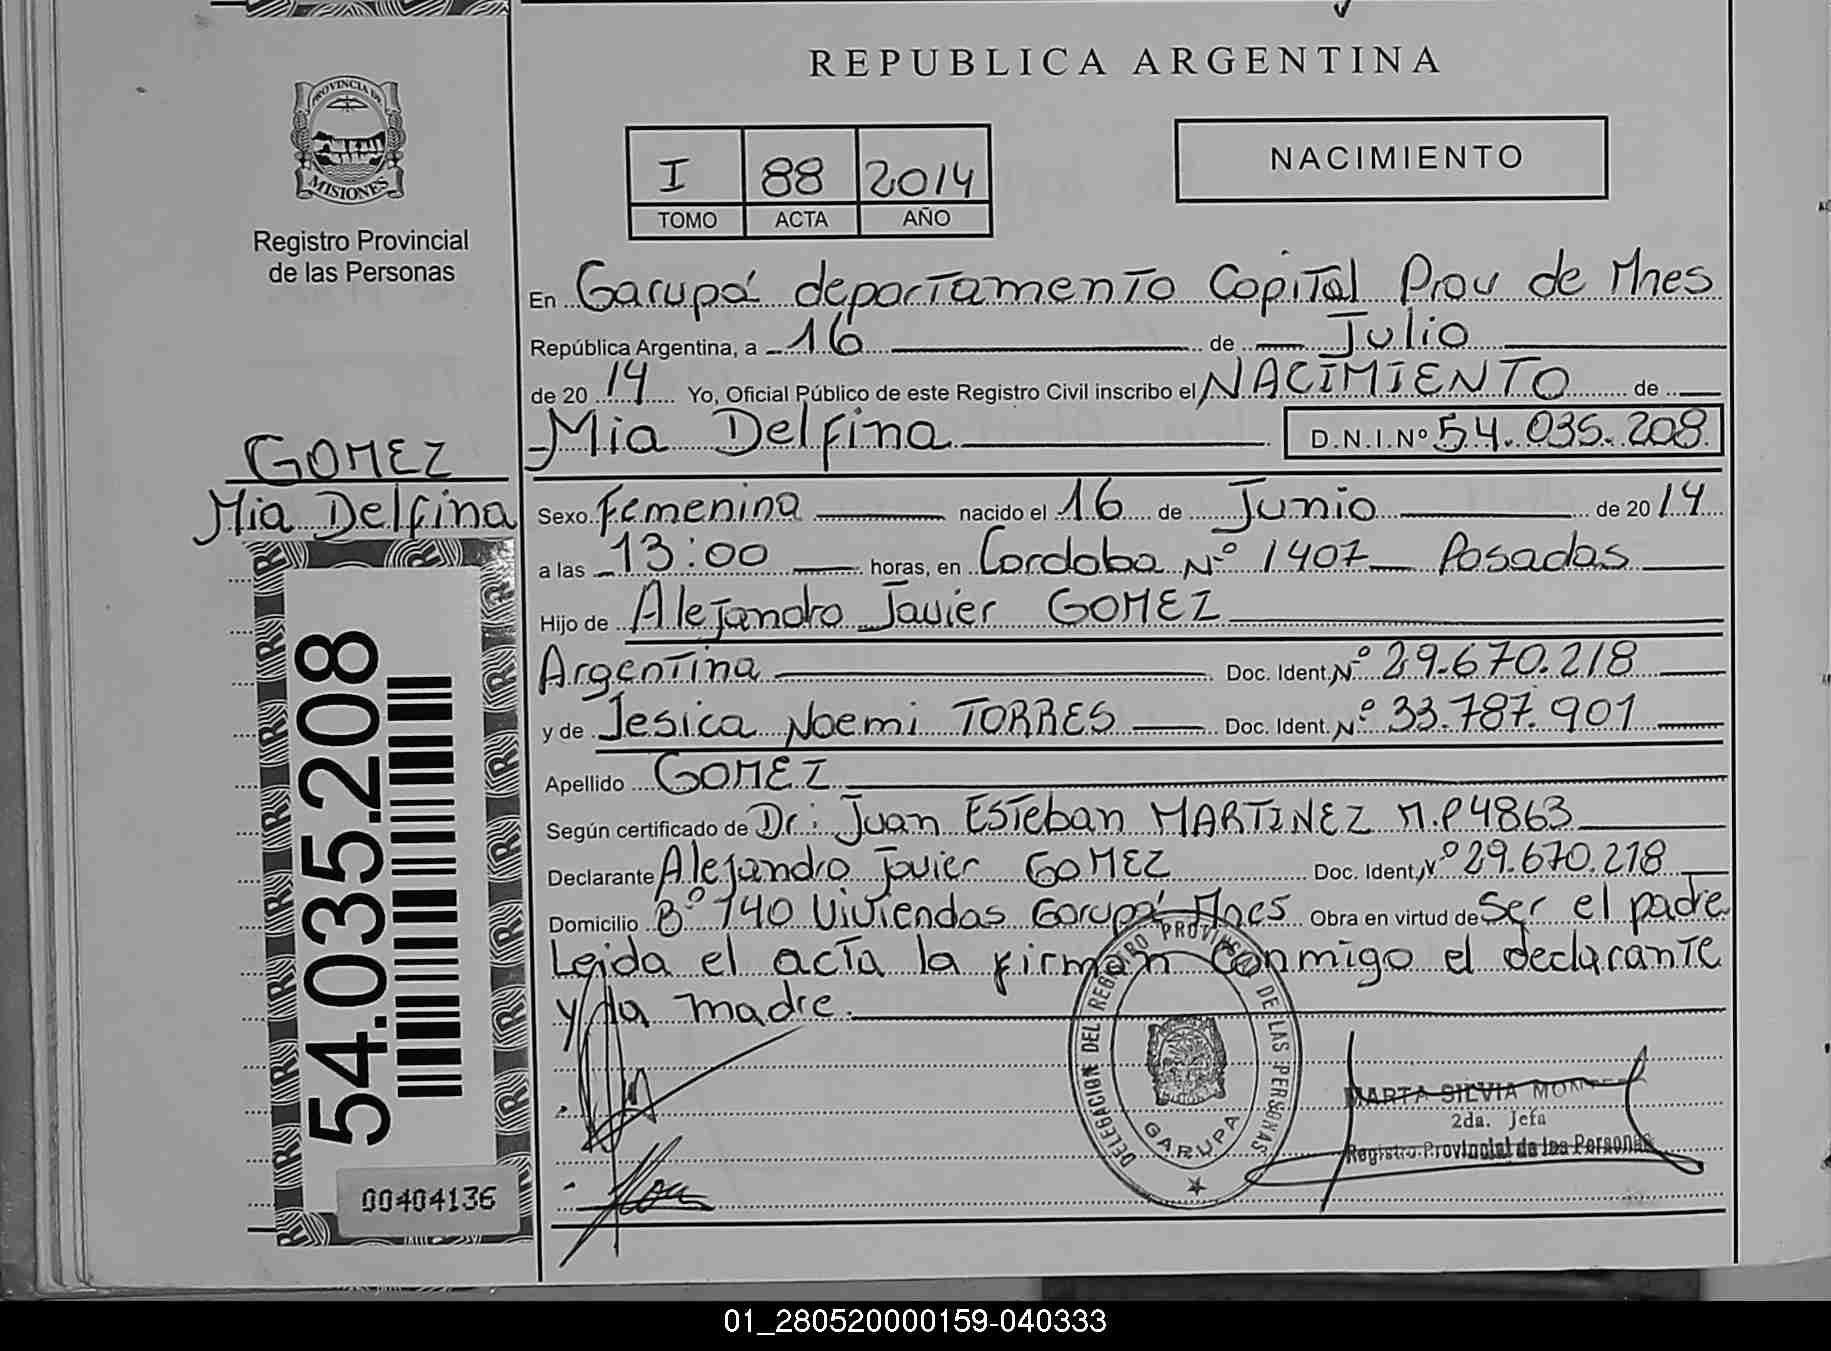 REPUBLICA ARGENTINA
PROVINCIA DE
MISIONES
Registro Provincial
de las Personas
I 88 2014
TOMO ACTA AÑO
NACIMIENTO
En Garupá departamento Capital Prov de Mnes
República Argentina, a 16 de Julio
de 20 14 Yo, Oficial Público de este Registro Civil inscribo el NACIMIENTO de
Mia Delfina D.N.I.Nº 54.035.208
GOMEZ
Mia Delfina
Sexo Femenina nacido el 16 de Junio de 20 14
a las 13:00 horas, en Cordoba Nº 1407 Posadas
Hijo de Alejandro Javier GOMEZ
Argentina Doc. Ident. Nº 29.670.218
y de Jesica Noemi TORRES Doc. Ident. Nº 33.787.901
Apellido GOMEZ
Según certificado de Dr: Juan Esteban MARTINEZ M.P 4863
Declarante Alejandro Javier GOMEZ Doc. Ident. Nº 29.670.218
Domicilio Bº 140 Viviendas Garupá Mnes Obra en virtud de Ser el padre
Leida el acta la firman conmigo el declarante
y la madre.
54.035.208
00404136
DELEGACION DEL REGISTRO PROVINCIAL DE LAS PERSONAS
GARUPA
MARTA SILVIA
2da. Jefa
Registro Provincial de las Personas
01_280520000159-040333